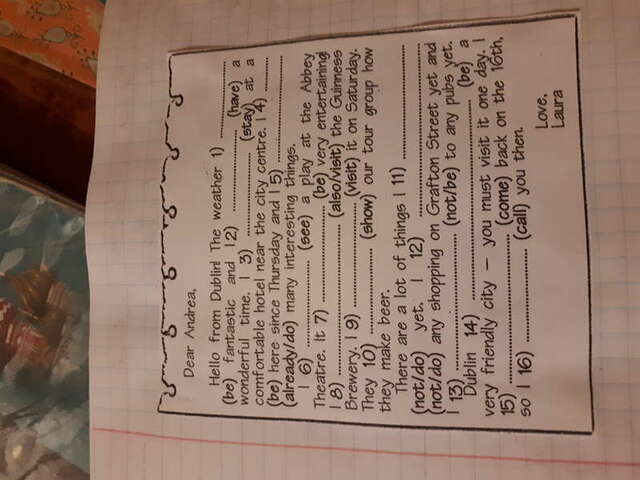 Dear Andrea,
Hello from Dublin! The weather 1) ....................
(be) fantastic and I 2) .................... (have) a
wonderful time. I 3) .................... (stay) at a
comfortable hotel near the city centre. I 4) ....................
(be) here since Thursday and I 5) ....................
(already/do) many interesting things.
I 6) .................... (see) a play at the Abbey
Theatre. It 7) .................... (be) very entertaining!
I 8) .................... (also/visit) the Guinness
Brewery. I 9) .................... (visit) it on Saturday.
They 10) .................... (show) our tour group how
they make beer.
There are a lot of things I 11) ....................
(not/do) yet. I 12) ....................
(not/do) any shopping on Grafton Street yet and
I 13) .................... (not/be) to any pubs yet.
Dublin 14) .................... (be) a
very friendly city – you must visit it one day. I
15) .................... (come) back on the 16th,
so I 16) .................... (call) you then.
Love,
Laura